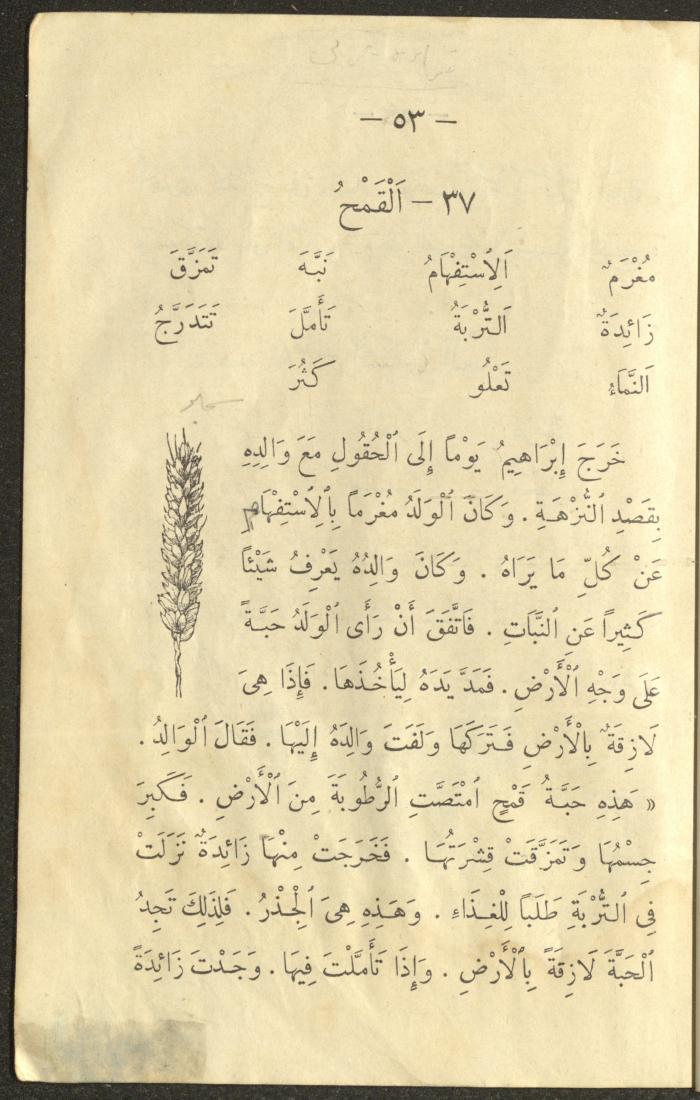 — ٥٣ —
٣٧ — اَلْقَمْحُ
مُغْرَمٌ اَلِٱسْتِفْهَامُ نَبَّهَ تَمَزَّقَ
زَائِدَةٌ اَلتُّرْبَةُ تَأَمَّلَ تَتَدَرَّجُ
اَلنَّمَاءُ تَعْلُو كَثُرَ
خَرَجَ إِبْرَاهِيمُ يَوْماً إِلَى ٱلْحُقُولِ مَعَ وَالِدِهِ
بِقَصْدِ ٱلنُّزْهَةِ . وَكَانَ ٱلْوَلَدُ مُغْرَماً بِٱلِٱسْتِفْهَامِ
عَنْ كُلِّ مَا يَرَاهُ . وَكَانَ وَالِدُهُ يَعْرِفُ شَيْئاً
كَثِيراً عَنِ ٱلنَّبَاتِ . فَاتَّفَقَ أَنْ رَأَى ٱلْوَلَدُ حَبَّةً
عَلَى وَجْهِ ٱلْأَرْضِ . فَمَدَّ يَدَهُ لِيَأْخُذَهَا . فَإِذَا هِىَ
لَازِقَةٌ بِٱلْأَرْضِ فَتَرَكَهَا وَلَفَتَ وَالِدَهُ إِلَيْهَا . فَقَالَ ٱلْوَالِدُ .
« هَذِهِ حَبَّةُ قَمْحٍ ٱمْتَصَّتِ ٱلرُّطُوبَةَ مِنَ ٱلْأَرْضِ . فَكَبِرَ
جِسْمُهَا وَتَمَزَّقَتْ قِشْرَتُهَا . فَخَرَجَتْ مِنْهَا زَائِدَةٌ نَزَلَتْ
فِى ٱلتُّرْبَةِ طَلَباً لِلْغِذَاءِ . وَهَذِهِ هِىَ ٱلْجِذْرُ . فَلِذَلِكَ تَجِدُ
ٱلْحَبَّةَ لَازِقَةً بِٱلْأَرْضِ . وَإِذَا تَأَمَّلْتَ فِيهَا . وَجَدْتَ زَائِدَةً